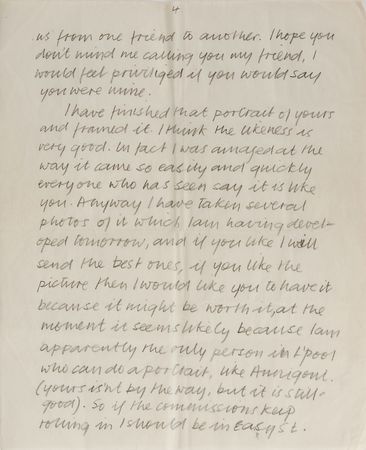 4
us from one friend to another. I hope you
don't mind me calling you my friend, I
would feel priviliged if you would say
you were mine.
I have finished that portrait of yours
and framed it. I think the likeness is
very good. In fact I was amazed at the
way it came so easily and quickly
everyone who has seen say it is like
you. Anyway I have taken several
photos of it which I am having devel-
oped tomorrow, and if you like I will
send the best ones, if you like the
picture then I would like you to have it
because it might be worth it, at the
moment it seems likely because I am
apparently the only person in L'pool
who can do a portrait, like
(yours is'nt by the way, but it is still
good). So if the commissions keep
rolling in I should be in Easy St.